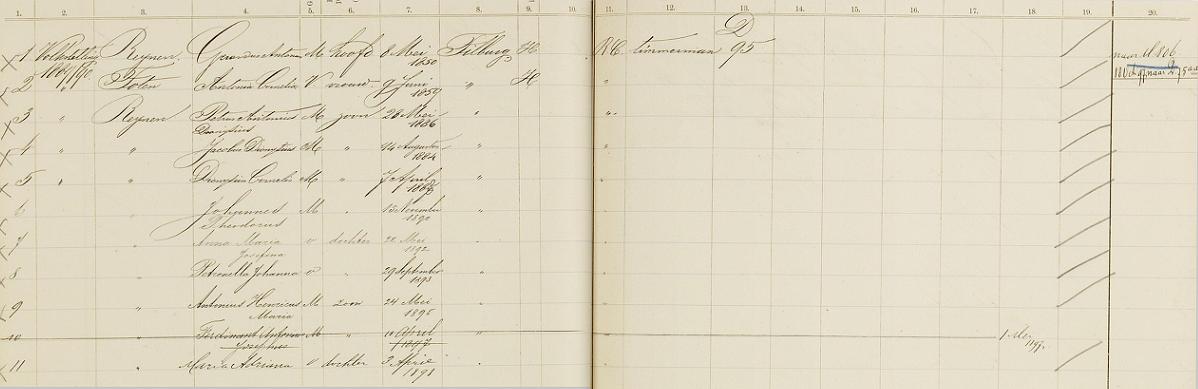 1. 2. 3. 4. 5. 6. 7. 8. 9. 10. 11. 12. 13. 14. 15. 16. 17. 18. 19. 20.
D
1 Volkstelling Reynen Gerardus Antonius M hoofd 8 Mei Tilburg H RC timmerman 95
1889/90 1850
2 " Foten Antonia Cornelia V vrouw 9 Juni " H "
1859
3 " Reynen Petrus Antonius M zoon 28 Mei " "
Dionysius 1886
4 " " Jacobus Dionysius M " 14 Augustus "
1884
5 " " Dionysius Cornelis M " 7 April "
6 Johannes M " 13 November "
Theodorus 1890
7 " Anna Maria v dochter 22 Mei
Josefina 1892
8 " Petronella Johanna v " 29 September "
1893
9 " Antonius Henricus M zoon 24 Mei "
Maria 1895
10 " Ferdinant Antonius M " April "
Josephus 1897
11 " Maria Adriana v dochter 3 April "
1898